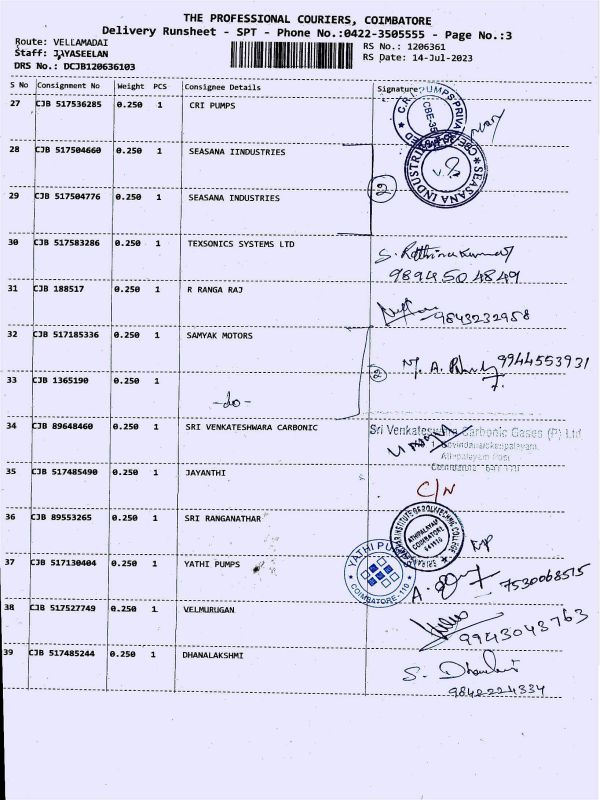 THE PROFESSIONAL COURIERS, COIMBATORE
Delivery Runsheet - SPT - Phone No.:0422-3505555 - Page No.:3
Route: VELLAMADAI RS No.: 1206361
Staff: JAYASEELAN RS Date: 14-Jul-2023
DRS No.: DCJB120636103
S No Consignment No Weight PCS Consignee Details Signature
27 CJB 517536285 0.250 1 CRI PUMPS
28 CJB 517504660 0.250 1 SEASANA IINDUSTRIES
SEASANA INDUSTRIES
29 CJB 517504776 0.250 1 SEASANA INDUSTRIES
30 CJB 517583286 0.250 1 TEXSONICS SYSTEMS LTD
9894504849
31 CJB 188517 0.250 1 R RANGA RAJ
9843232958
32 CJB 517185336 0.250 1 SAMYAK MOTORS
9944553931
33 CJB 1365190 0.250 1 -do-
34 CJB 89648460 0.250 1 SRI VENKATESHWARA CARBONIC
Sri Venkateswara Carbonic Gases (P) Ltd
Athipalayam Post
35 CJB 517485490 0.250 1 JAYANTHI
C/N
36 CJB 89553265 0.250 1 SRI RANGANATHAR
ATHIPALAYAM
COIMBATORE
641110
37 CJB 517130404 0.250 1 YATHI PUMPS
YATHI PUMPS
COIMBATORE-110
7530068575
38 CJB 517527749 0.250 1 VELMURUGAN
9943043763
39 CJB 517485244 0.250 1 DHANALAKSHMI
9842224334